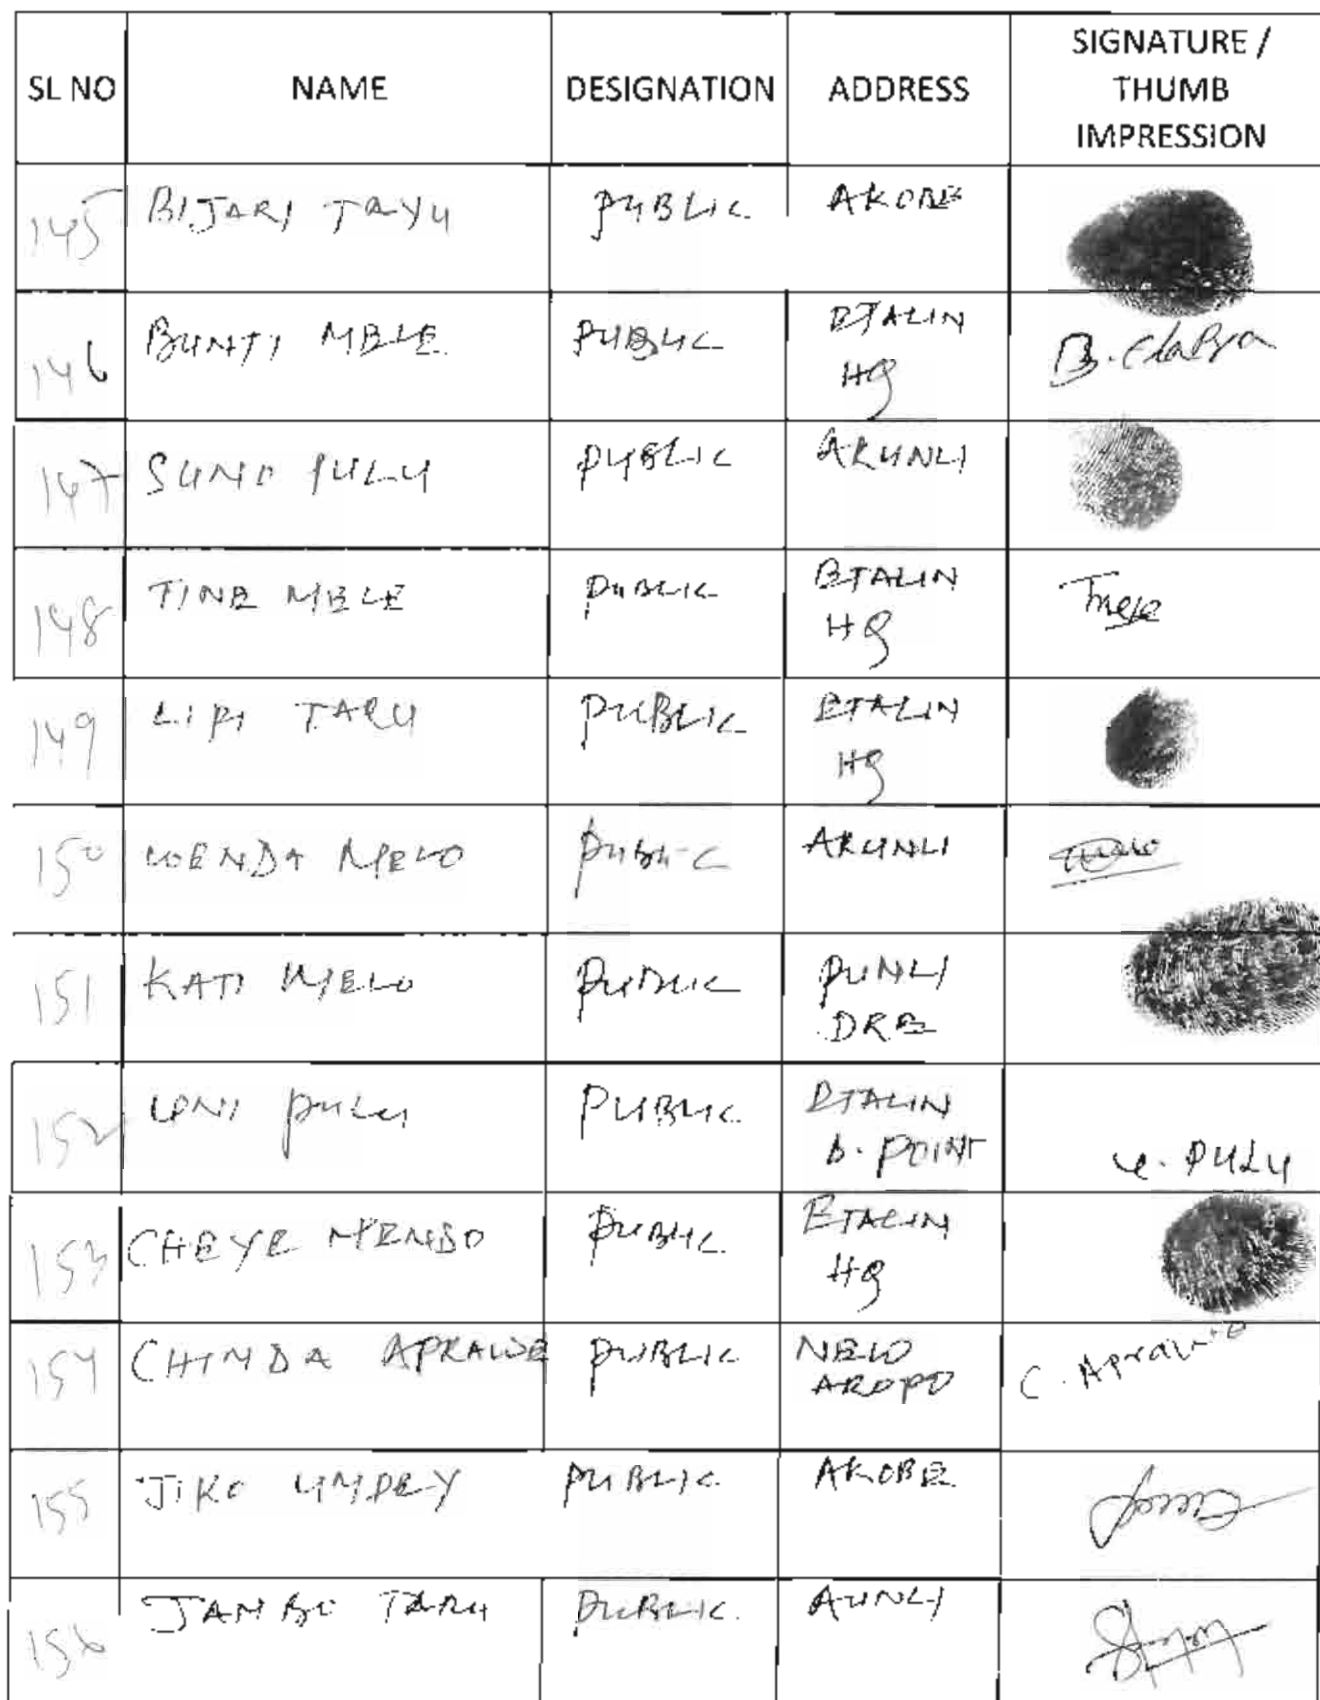 SL NO NAME DESIGNATION ADDRESS SIGNATURE / THUMB IMPRESSION
145 BIJARI TAYU PUBLIC AKOBE
146 BUNTI MELE PUBLIC ETALIN HQ
147 SUNO PULU PUBLIC ARUNLI
148 TINE MELE PUBLIC ETALIN HQ
149 LIPI TARU PUBLIC ETALIN HQ
150 WENDA MELO PUBLIC ARUNLI
151 KATI MELO PUBLIC PUNLI DRE
152 UNI PULU PUBLIC ETALIN B. POINT U. PULU
153 CHEYE MENDO PUBLIC ETALIN HQ
154 CHINDA APRAWE PUBLIC NEW AROPO C. Aprawe
155 JIKO UMPEY PUBLIC AKOBE
156 JAMBO TARU PUBLIC AUNLI